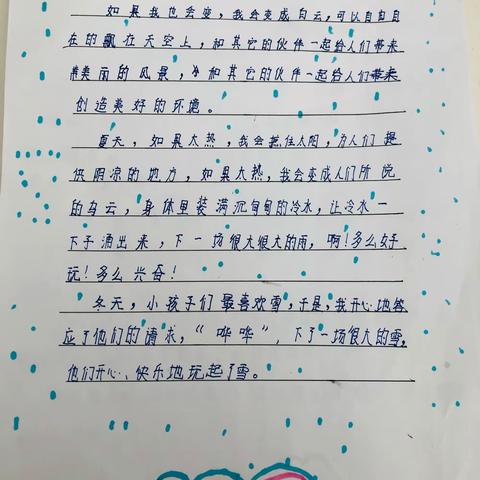 如果我也会变，我会变成白云，可以自由自
在的飘在天空上，和其它的伙伴一起给人们带来
美丽的风景，和其它的伙伴一起给人们
创造美好的环境。
夏天，如果太热，我会挡住太阳，为人们提
供阴凉的地方，如果太热，我会变成人们所说
的乌云，身体里装满沉甸甸的冷水，让冷水一
下子涌出来，下一场很大很大的雨，啊！多么好
玩！多么兴奋！
冬天，小孩子们最喜欢雪，于是，我开心地答
应了他们的请求，“哗哗”，下了一场很大的雪，
他们开心、快乐地玩起了雪。